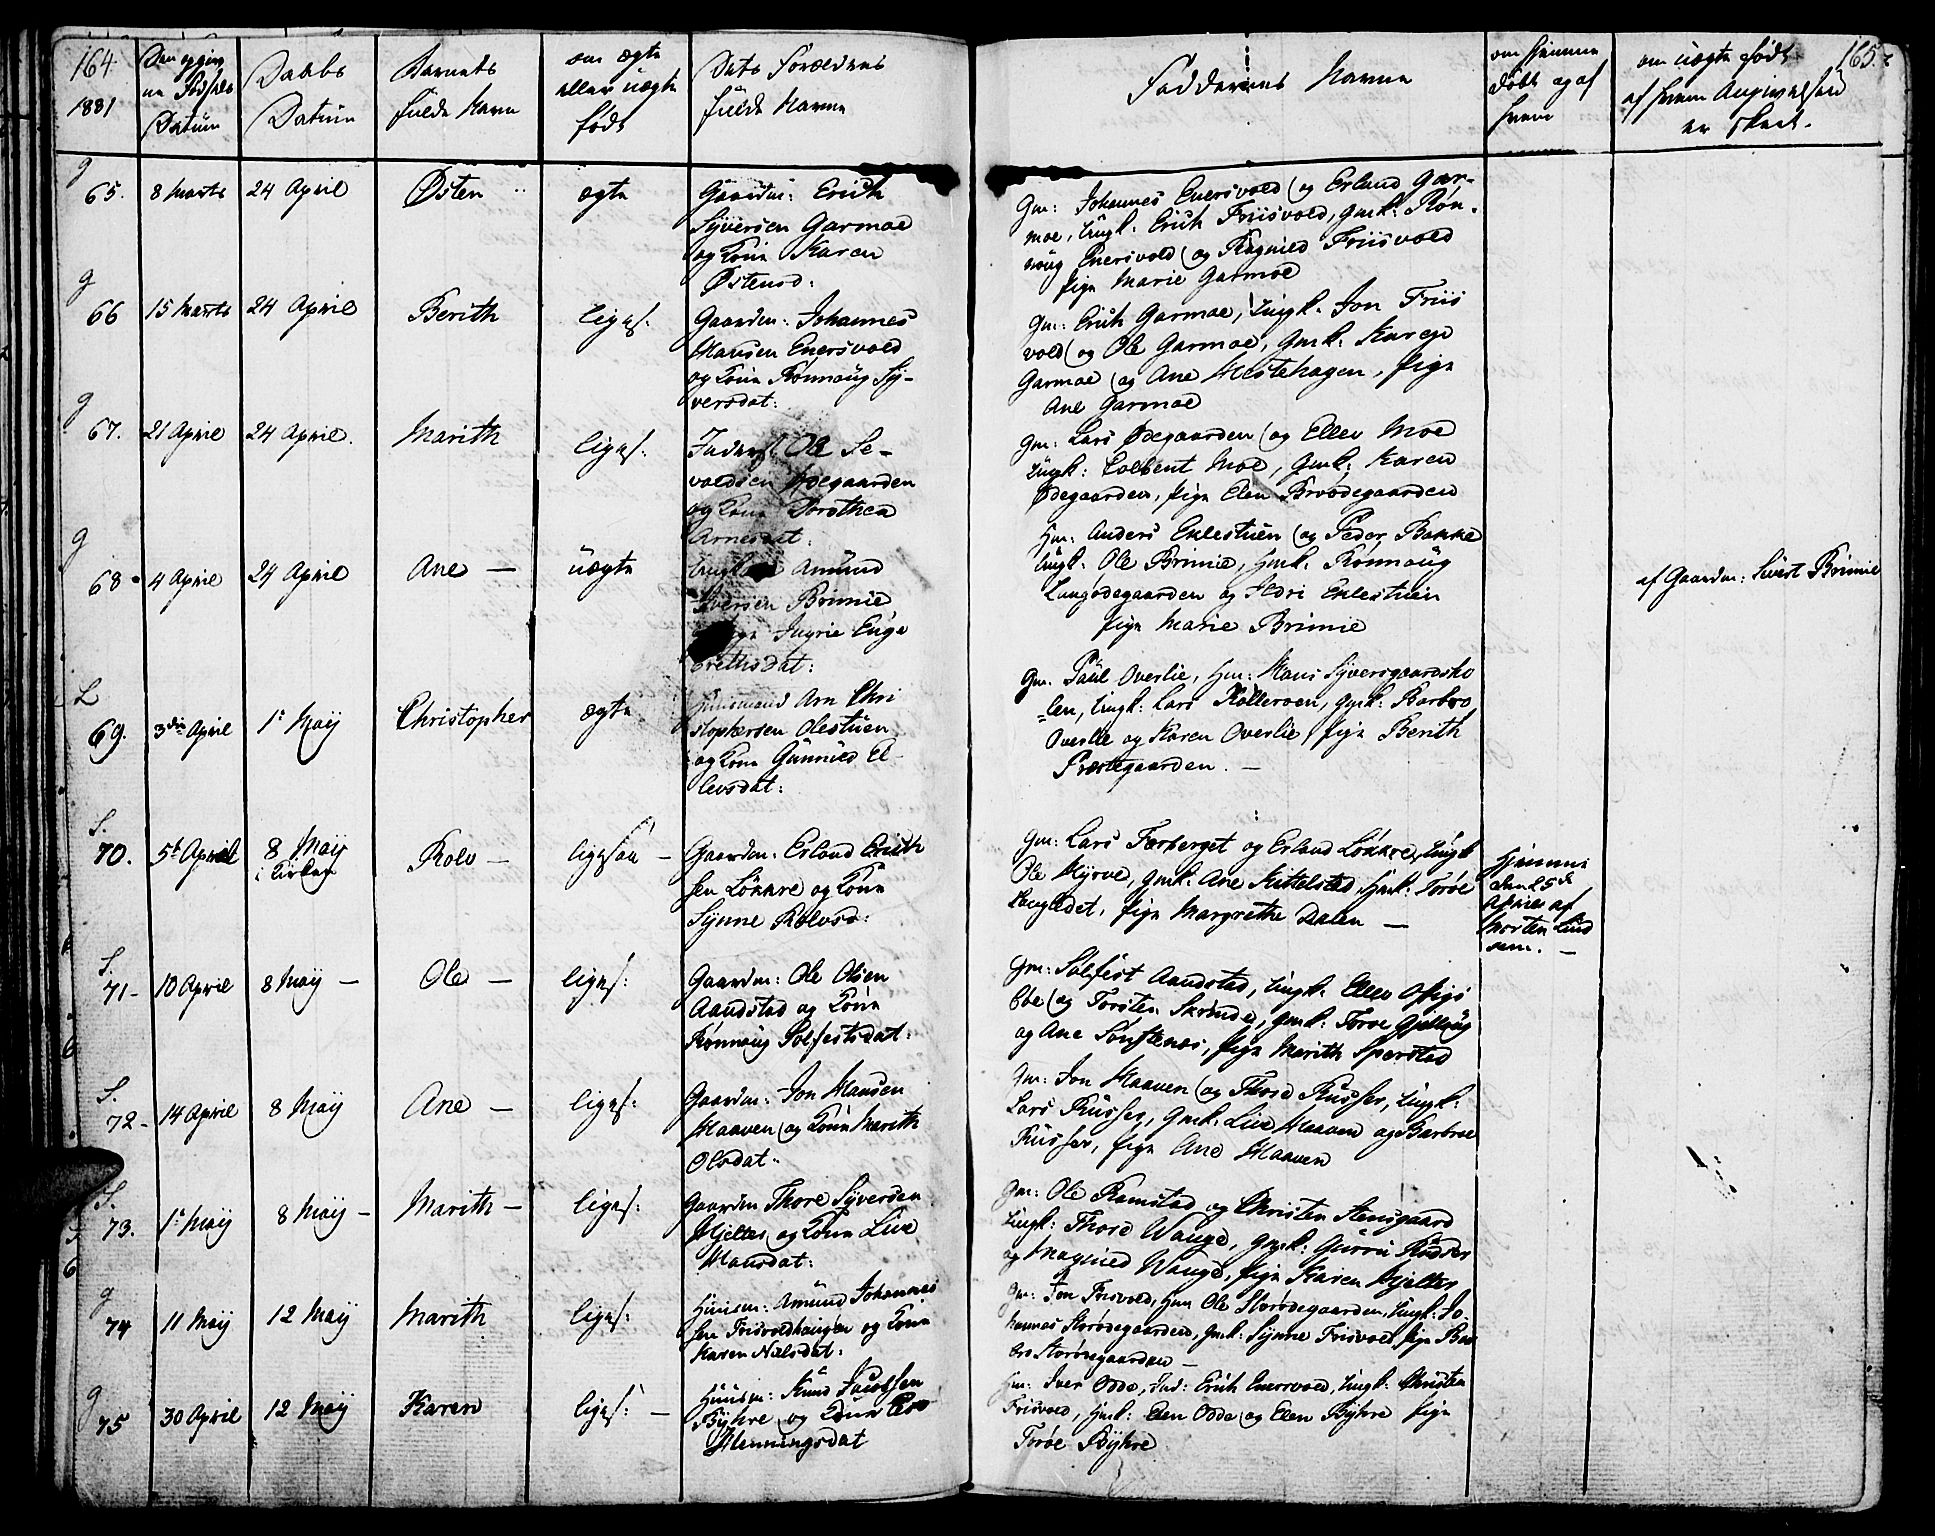 164
1881
Datum
Daabs
Datum
Barnets
fulde Navn
om ægte
eller uægte
født
Dets Forældres
fulde Navne
Faddernes Navne
om hjemme
døbt og af
hvem
om uægte født
af hvem Angivelsen
er skeet.
165.
g
65. 8 Marts 24 April Østen ægte
Gaardm: Erich
Syversen Garmoe
og Kone Karen
Østensd:
Gm: Johannes Enersvold (og Erland Gar-
moe, Ungk: Erich Friisvold, Gmk: Røn-
noug Enersvold (og Ragnild Friisvold
Pige Marie Garmoe
g
66 15 Marts 24 April Berith ligs:
Gaardm: Johannes
Hansen Enersvold
og Kone Rønnoug Sy-
versdat:
Gm: Erich Garmoe, Ungk. Jon Friis
vold (og Ole Garmoe, Gmk: Karen
Garmoe (og Ane Hestehagen, Pige
Ane Garmoe
g
67. 21 April 24 April. Marith ligs:
Inderst Ole Se-
voldsen Ødegaarden
og Kone Dorothea
Arnesdat:
Gm: Lars Ødegaarden (og Ellev Moe
Ungk: Colbent Moe, Gmk: Karen
Ødegaarden, Pige Elen Brødegaarden
g
68. 4 April 24 April Ane — uægte
Amund
Iversen Brimie
Ingrie Enge
brethsdat:
Hm: Anders Eklestuen (og Peder Bakke
Ungk: Ole Brimie, Hmk. Rønnoug
Langødegaarden og Eklestuen
Pige Marie Brimie
af Gaardm: Sivert Brimie
L
69. 3die April 1' May Christopher ægte
Huusmand Arn Chri
stophersen Olestuen
og Kone Gunnild El-
levsdat:
Gm: Paul Overlie, Hm: Hans Syversgaardsko
len, Ungk: Lars Kolleroen, Gmk: Barbro
Overlie og Karen Overlie, Pige Berith
Præstegaarden. —
S.
70. 5t April 8 May Rolv — ligesaa —
i Kirken
Gaardm: Erland Erich
sen Løkkre og Kone
Synne Rolvsd:
Gm: Lars Færberget og Erland Løkkre, Ungk
Ole Myrve, Gmk: Ane Kittelstad, Hmk: Torøe
Pige Margrethe Dalen —
Hjemme
den 25de
April af
Morten Lund
—
S.
71— 10 April 8 May — Ole — ligs:
Gaardm: Ole Olsen
Aandstad og Kone
Rønnoug Solfestsdat:
Gm: Solfest Aandstad, Ungk. Ellev Offigs
boe (og Torsten Skrinde, Gmk: Toroe Gjelloug
og Ane Sønstenes, Pige Marith Sperstad
S.
72— 14 April 8 May Ane — ligs:
Gaardm: Jon Hansen
Haaven (og Kone Marith
Olsdat:
Gm: Jon Haaven (og Thord Russer, Ungk:
Lars Russer, Gmk: Live Haaven og Barbroe
Russer, Pige Ane Haaven
S.
73. 1' May 8 May — Marith — ligs:
Gaardm Thore Syversen
Hjeltes (og Kone Live
Hansdat:
Gm: Ole Ramstad og Christen Stensgaard
Ungk: Thord Waage, Gmk: Gurri Russer
og Magnild Waage, Pige Karen Hjeltes
g
74 11 May 12 May Marith ligs:
Huusm: Amund Johannes
sen Friisvoldhaugen og Kone
Karen Nielsdat:
Gm: Jon Frisvold, Hm Ole Storødegaarden, Ungk: Jo
hannes Storødegaarden, Gmk: Synne Frisvold, Pige Bar
bro Storødegaarden —
g
75 30 April 12 May Karen ligs: —
Huusm: Knud Jacobsen
Byhre (og Kone
Henningsdat
Hm: Iver Odde, Ind: Erich Enersvold, Ungk: Christen
Frisvold, Hmk: Elen Odde (og Elen Byhre Pige
Torøe Byhre